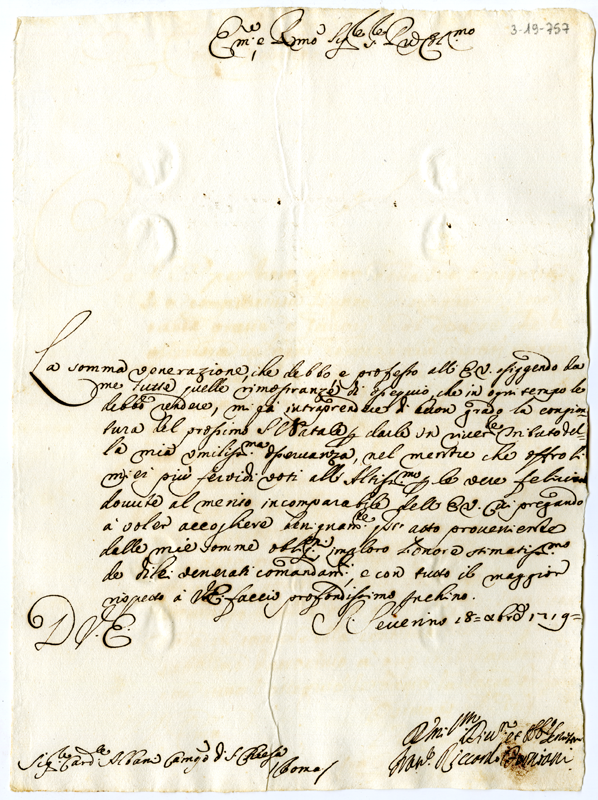 3-19-757
Em̃o e Rm̃o Sig.re Sig.re Prõn Col.mo
La somma venerazione, che debbo e professo all' E.V. esiggendo da
me tutte quelle rimostranze di ossequio, che in ogni tempo le
debbo rendere, mi fà intraprendere di buon grado la congiun-
tura del prossimo S. Natale p darle un river.te tributo del-
la mia umiliss.ma osservanza, nel mentre che offro li
miei più fervidi voti all' Altiss.mo p le vere felicità
dovute al merito incomparabile dell' E.V. pregando
à voler accogliere benignam.te atto proveniente
dalle mie somme obblig.ni onore stimatiss.mo
de di lei venerati comandam.ti e con tutto il maggior
rispetto à V.E. faccio profondissimo Inchino.
D V. E.
S. Severino 18 = xbre 1719 =
Sig.re Card.le Albani Camg.o di S. Chiesa
Roma